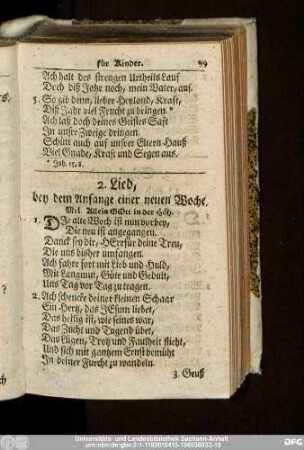 für Kinder. 99
Ach halt des strengen Urtheils Lauf
Doch diß Jahr noch, mein Vater, auf.
5. So gib denn, lieber Heyland, Kraft,
Diß Jahr viel Frucht zu bringen *
Ach laß doch deines Geistes Saft
In unsre Zweige dringen.
Schütt auch auf unser Eltern Hauß
Viel Gnade, Kraft und Segen aus.
* Joh. 15, 8.
2. Lied,
bey dem Anfange einer neuen Woche.
Mel. Allein GOtt in der Höh.
1. DIe alte Woch ist nun vorbey,
Die neu ist angegangen.
Danck sey dir, HErr für deine Treu,
Die uns bisher umfangen.
Ach fahre fort mit Lieb und Huld,
Mit Langmut, Güte und Gedult,
Uns Tag vor Tag zu tragen.
2. Ach schencke deiner kleinen Schaar
Ein Hertz, das JEsum liebet,
Das heilig ist, wie seines war,
Das Zucht und Tugend übet,
Das Lügen, Trotz und Faulheit flieht,
Und sich mit gantzem Ernst bemüht
In deiner Furcht zu wandeln.
3. Geuß
Universitäts- und Landesbibliothek Sachsen-Anhalt
urn:nbn:de:gbv:3:1-1192015415-156538633-19
DFG